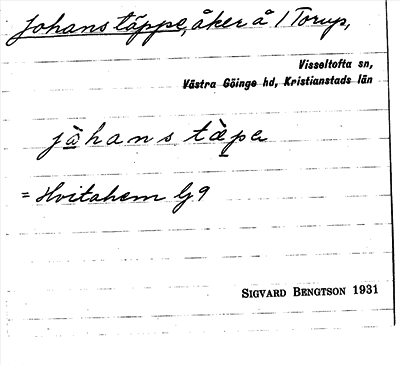 Johanstäppe, åker å 1 Torup,
Visseltofta sn,
Västra Göinge hd, Kristianstads län
jàhans tæ̀pe
= Hvitahem Lj 9
SIGVARD BENGTSON 1931